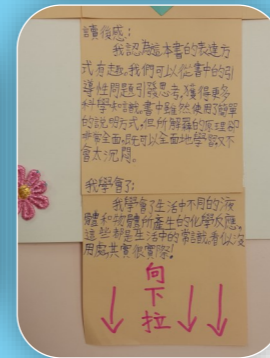 讀後感：
我認為這本書的表達方
式有趣，我們可以從書中的引
導性問題引發思考，獲得更多
科學知識，書中雖然使用了簡單
的說明方式，但所解釋的原理卻
非常全面，既可以全面地學習又不
會太沉悶。
我學會了：
我學會了生活中不同的液
體和球體所產生的化學反應，
這些都是生活中的常識，看似沒
用處，其實很實際！
向
下
拉